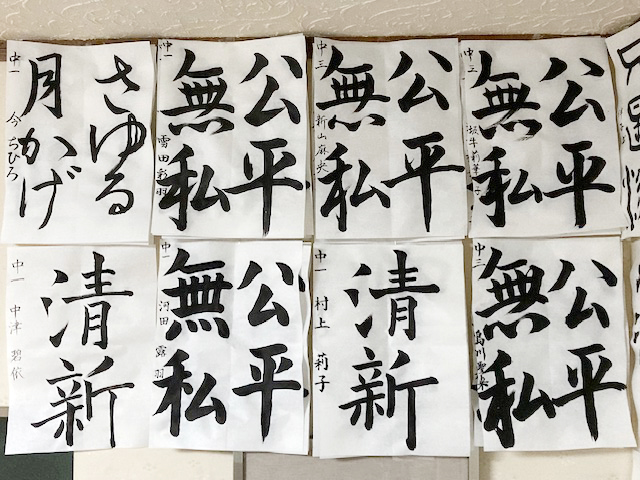 さゆる
月かげ
中一
今ちひろ
公平
無私
中一
雪田彩羽
公平
無私
中三
折山麻央
公平
無私
中三
清新
中一
中津 碧依
公平
無私
中一
河田 露羽
清新
中一
村上 莉子
公平
無私
中三